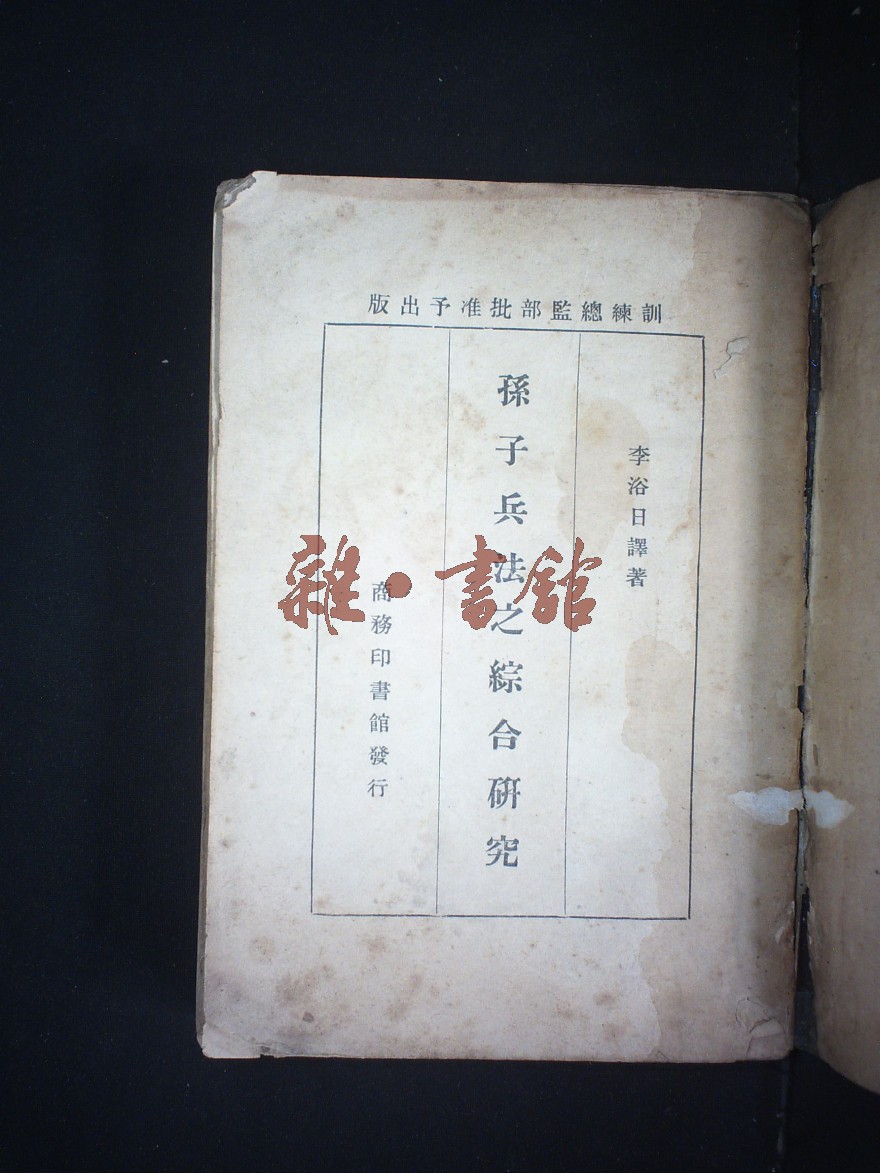 訓練總監部批准予出版
李浴日譯著
孫子兵法之綜合硏究
商務印書館發行
雜·書館